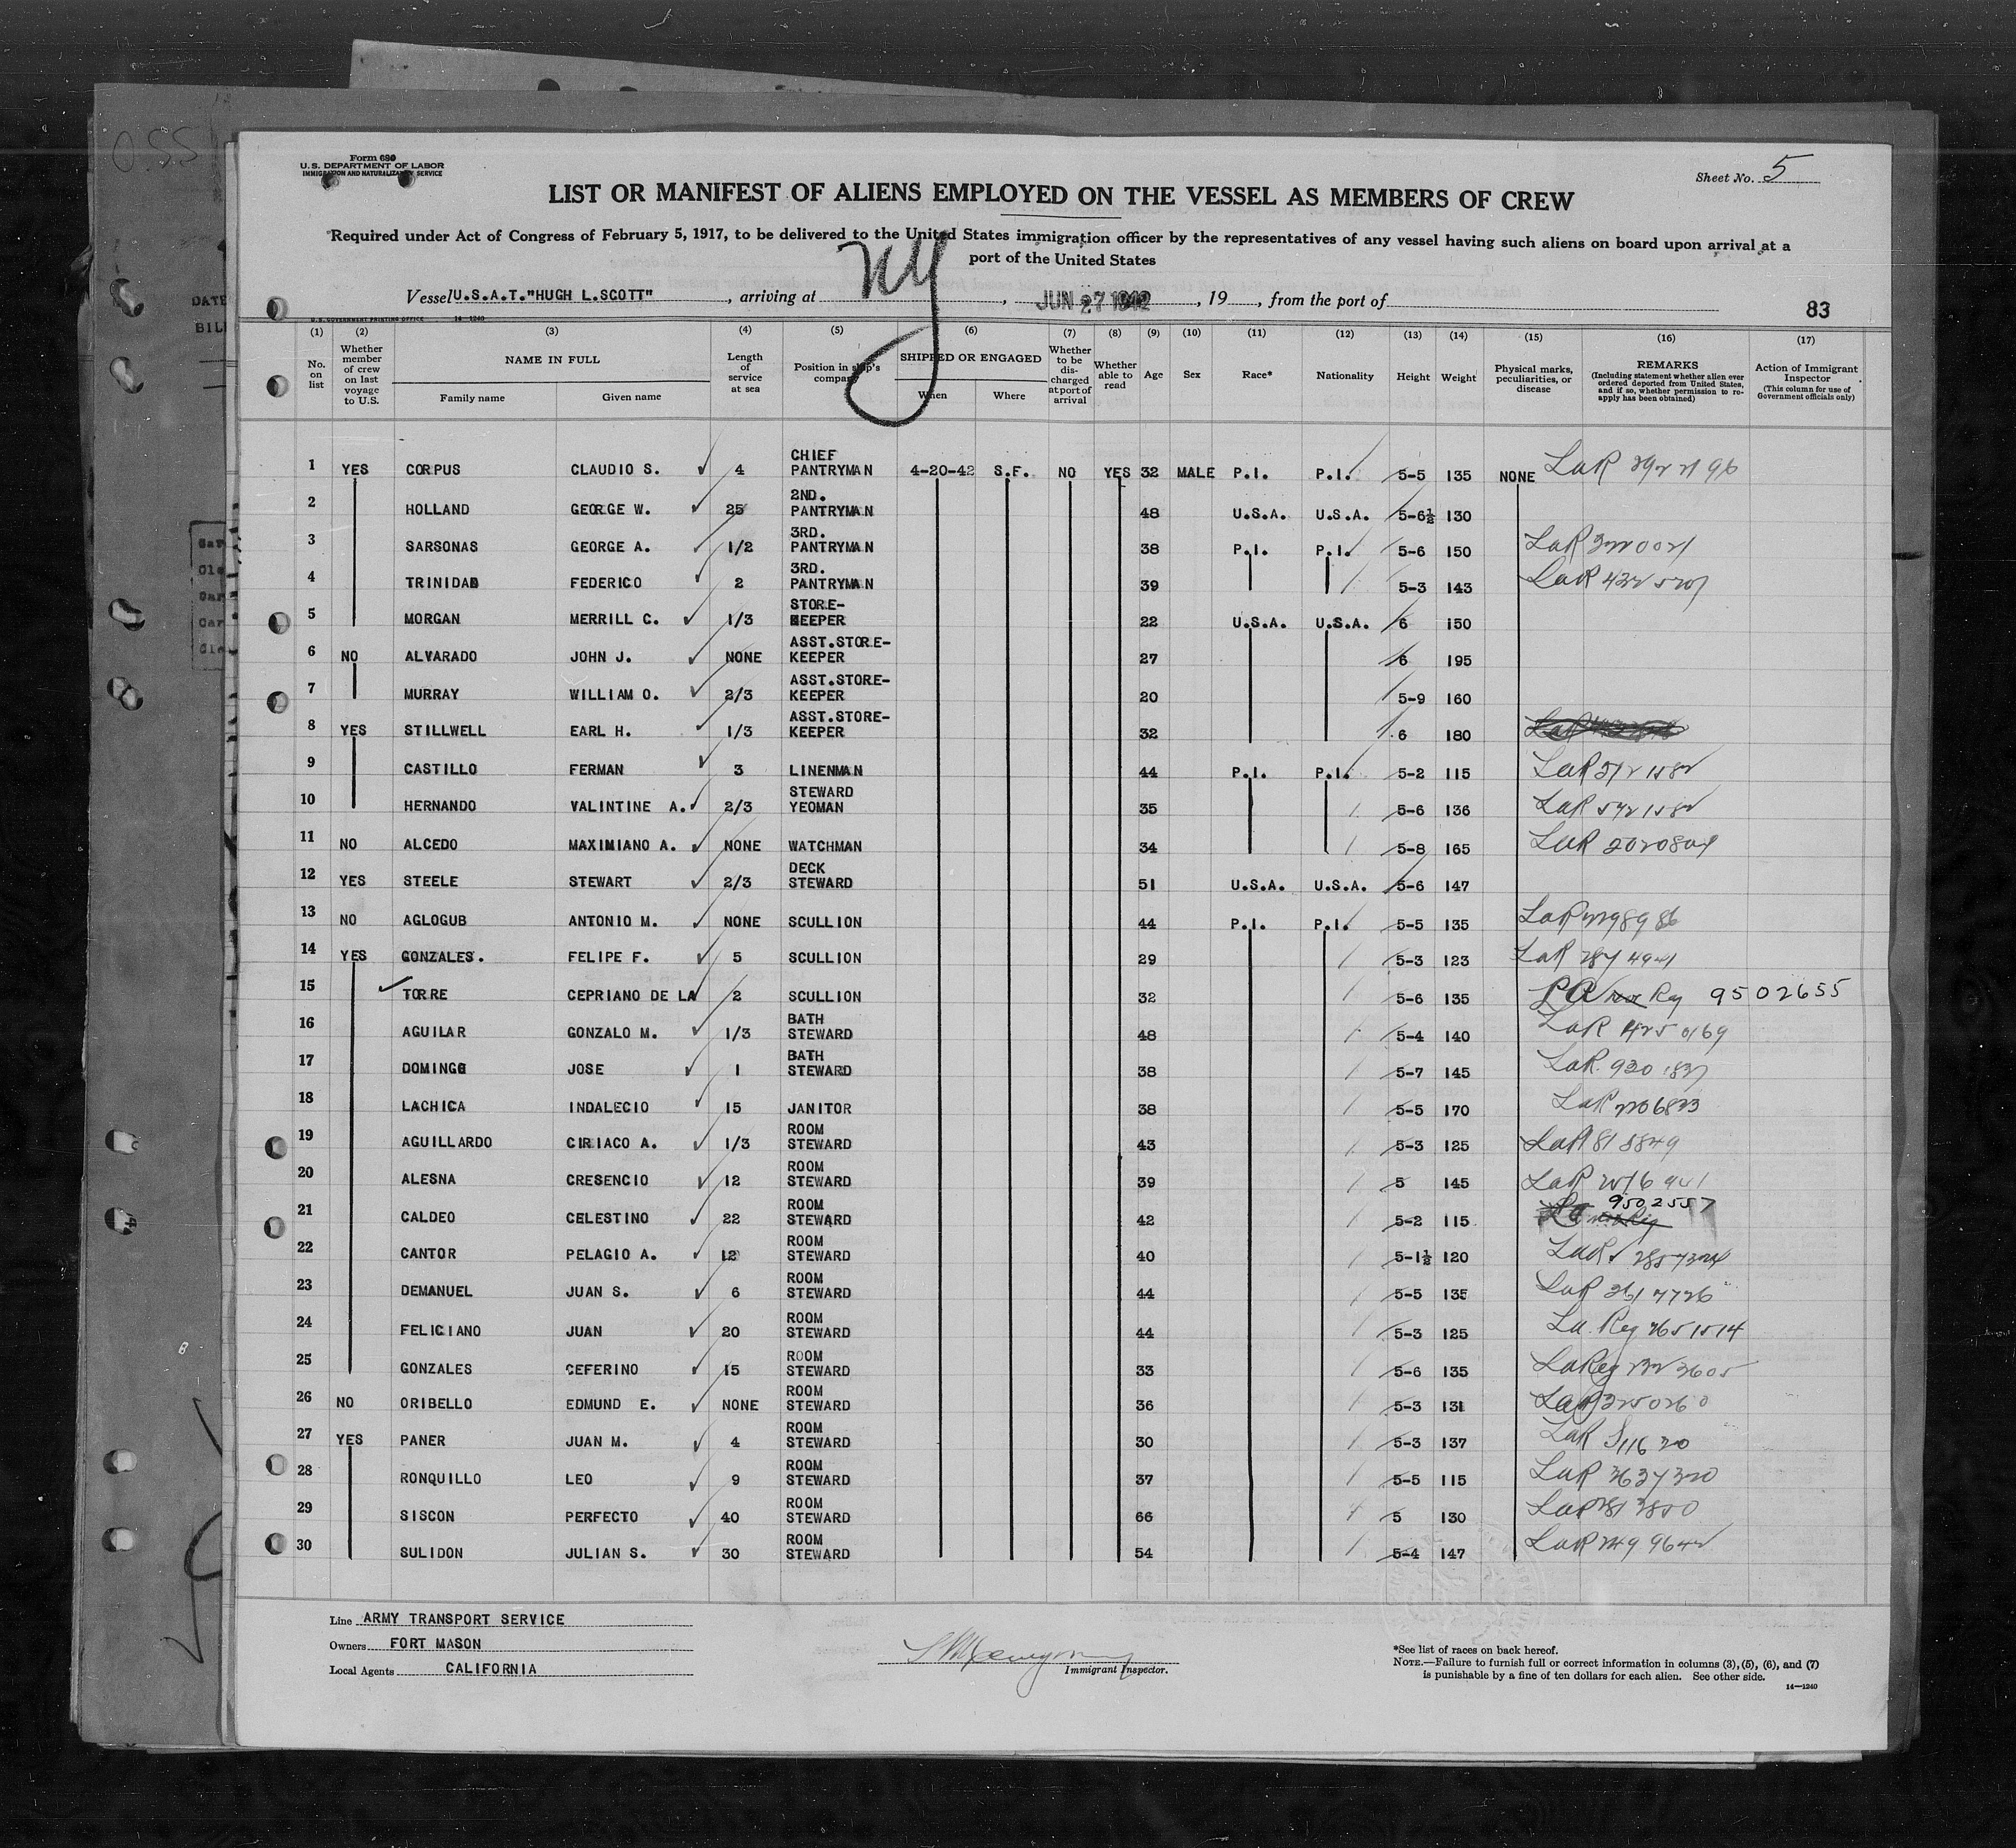 OSS
DATE
BILL
Form 680
U.S. DEPARTMENT OF LABOR
IMMIGRATION AND NATURALIZATION SERVICE
Sheet No. 5
LIST OR MANIFEST OF ALIENS EMPLOYED ON THE VESSEL AS MEMBERS OF CREW
Required under Act of Congress of February 5, 1917, to be delivered to the United States immigration officer by the representatives of any vessel having such aliens on board upon arrival at a
port of the United States
Vessel U.S.A.T."HUGH L.SCOTT", arriving at NY, JUN 27 1942, 19, from the port of
83
U.S. GOVERNMENT PRINTING OFFICE 14-1240
(1) (2) (3) (4) (5) (6) (7) (8) (9) (10) (11) (12) (13) (14) (15) (16) (17)
No. on list
Whether member of crew on last voyage to U.S.
NAME IN FULL
Family name Given name
Length of service at sea
Position in ship's company
SHIPPED OR ENGAGED
When Where
Whether to be discharged at port of arrival
Whether able to read
Age Sex Race* Nationality Height Weight
Physical marks, peculiarities, or disease
REMARKS
(Including statement whether alien ever ordered deported from United States, and if so, whether permission to re-apply has been obtained)
Action of Immigrant Inspector
(This column for use of Government officials only)
1 YES CORPUS CLAUDIO S. 4 CHIEF PANTRYMAN 4-20-42 S.F. NO YES 32 MALE P.I. P.I. 5-5 135 NONE LaR
2 HOLLAND GEORGE W. 25 2ND. PANTRYMAN 48 U.S.A. U.S.A. 5-6½ 130
3 SARSONAS GEORGE A. 1/2 3RD. PANTRYMAN 38 P.I. P.I. 5-6 150 LaR
4 TRINIDAD FEDERICO 2 3RD. PANTRYMAN 39 5-3 143 LaR
5 MORGAN MERRILL C. 1/3 STORE-KEEPER 22 U.S.A. U.S.A. 6 150
6 NO ALVARADO JOHN J. NONE ASST.STORE-KEEPER 27 6 195
7 MURRAY WILLIAM O. 2/3 ASST.STORE-KEEPER 20 5-9 160
8 YES STILLWELL EARL H. 1/3 ASST.STORE-KEEPER 32 6 180
9 CASTILLO FERMAN 3 LINENMAN 44 P.I. P.I. 5-2 115 LaR
10 HERNANDO VALINTINE A. 2/3 STEWARD YEOMAN 35 5-6 136 LaR
11 NO ALCEDO MAXIMIANO A. NONE WATCHMAN 34 5-8 165 LaR
12 YES STEELE STEWART 2/3 DECK STEWARD 51 U.S.A. U.S.A. 5-6 147
13 NO AGLOGUB ANTONIO M. NONE SCULLION 44 P.I. P.I. 5-5 135 LaR
14 YES GONZALES. FELIPE F. 5 SCULLION 29 5-3 123 LaR
15 TORRE CEPRIANO DE LA 2 SCULLION 32 5-6 135 Reg 9502655
16 AGUILAR GONZALO M. 1/3 BATH STEWARD 48 5-4 140 LaR
17 DOMINGO JOSE 1 BATH STEWARD 38 5-7 145 LaR
18 LACHICA INDALECIO 15 JANITOR 38 5-5 170 LaR
19 AGUILLARDO CIRIACO A. 1/3 ROOM STEWARD 43 5-3 125 LaR
20 ALESNA CRESENCIO 12 ROOM STEWARD 39 5 145 LaR
21 CALDEO CELESTINO 22 ROOM STEWARD 42 5-2 115 9502557
22 CANTOR PELAGIO A. 12 ROOM STEWARD 40 5-1½ 120 LaR
23 DEMANUEL JUAN S. 6 ROOM STEWARD 44 5-5 135 LaR
24 FELICIANO JUAN 20 ROOM STEWARD 44 5-3 125 La. Reg
25 GONZALES CEFERINO 15 ROOM STEWARD 33 5-6 135 LaReg
26 NO ORIBELLO EDMUND E. NONE ROOM STEWARD 36 5-3 131 LaR
27 YES PANER JUAN M. 4 ROOM STEWARD 30 5-3 137 LaR
28 RONQUILLO LEO 9 ROOM STEWARD 37 5-5 115 LaR
29 SISCON PERFECTO 40 ROOM STEWARD 66 5 130 LaR
30 SULIDON JULIAN S. 30 ROOM STEWARD 54 5-4 147 LaR
Line ARMY TRANSPORT SERVICE
Owners FORT MASON
Local Agents CALIFORNIA
Immigrant Inspector.
*See list of races on back hereof.
NOTE.—Failure to furnish full or correct information in columns (3), (5), (6), and (7)
is punishable by a fine of ten dollars for each alien. See other side.
14-1240